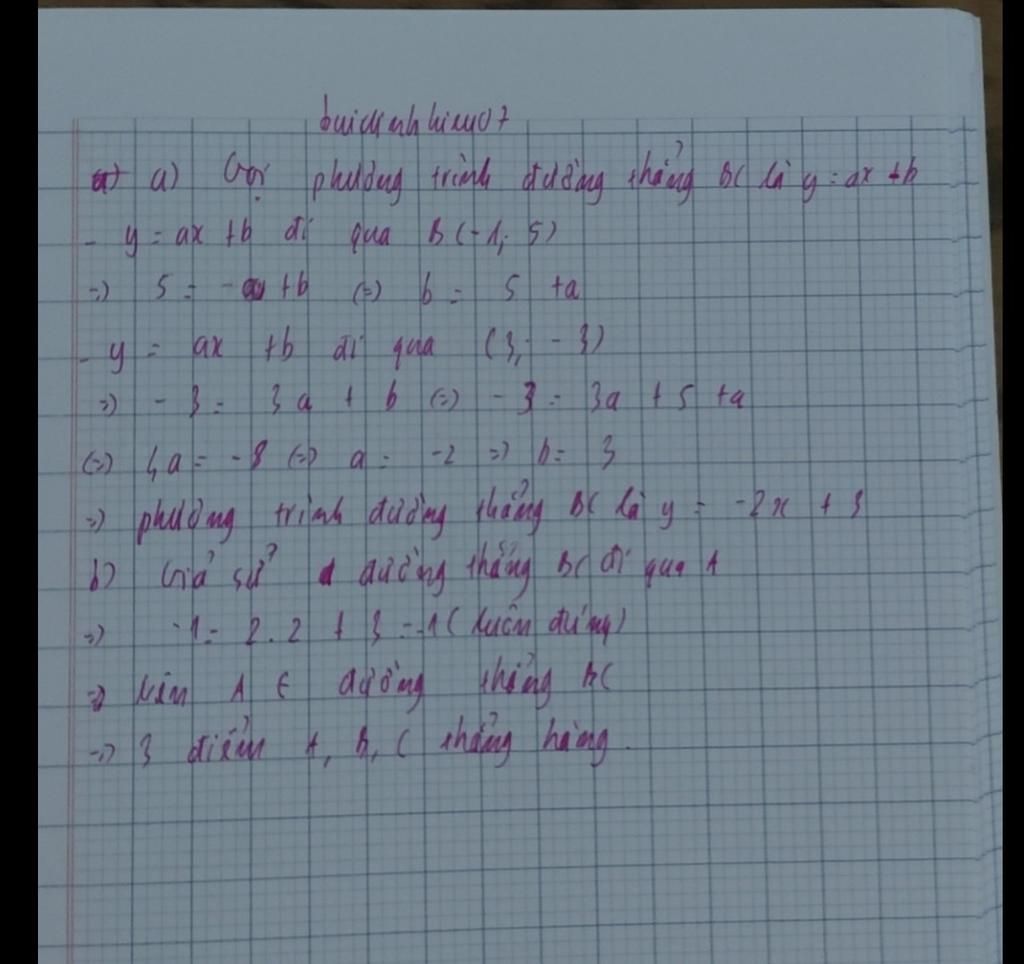 buidinhhieu07
a) Gọi phương trình đường thẳng BC là y = ax + b
- y = ax + b đi qua B (-1; 5)
=> 5 = - a + b (=) b = 5 + a
- y = ax + b đi qua (3; - 3)
=> - 3 = 3a + b (=) - 3 = 3a + 5 + a
(=) 4a = -8 (=) a = -2 => b = 3
=> phương trình đường thẳng BC là y = -2x + 3
b) Giả sử đường thẳng BC đi qua A
=> -1 = 2.2 + 3 = -1 (luôn đúng)
=> Nên A ∈ đường thẳng BC
=> 3 điểm A, B, C thẳng hàng.